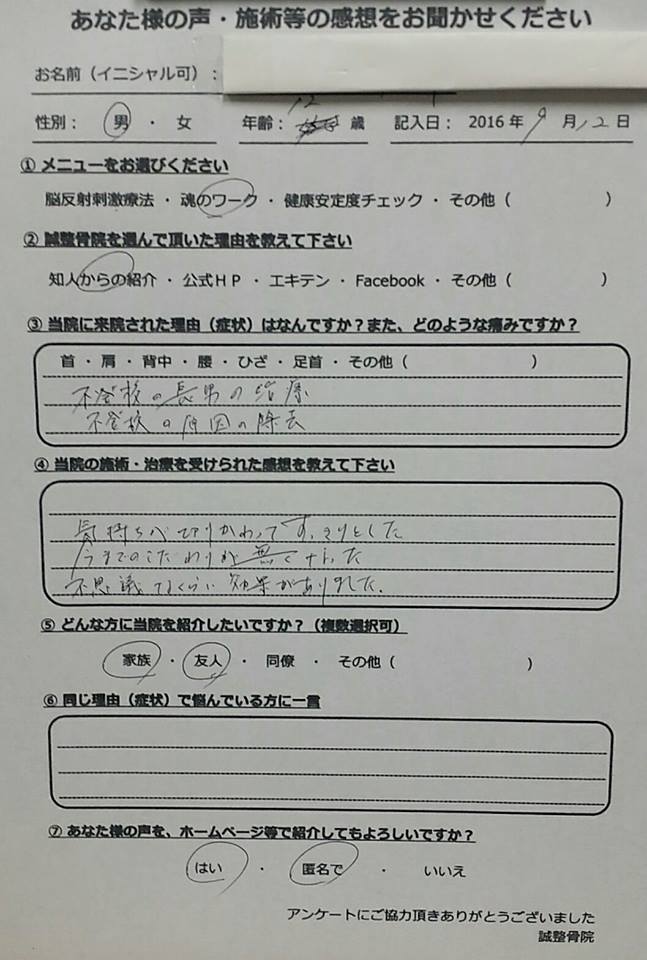 あなた様の声・施術等の感想をお聞かせください
お名前（イニシャル可）：
性別： 男 ・ 女 年齢： 12 歳 記入日： 2016 年 9 月 12 日
① メニューをお選びください
脳反射刺激療法 ・ 魂のワーク ・ 健康安定度チェック ・ その他（ ）
② 誠整骨院を選んで頂いた理由を教えて下さい
知人からの紹介 ・ 公式ＨＰ ・ エキテン ・ Facebook ・ その他（ ）
③ 当院に来院された理由（症状）はなんですか？また、どのような痛みですか？
首 ・ 肩 ・ 背中 ・ 腰 ・ ひざ ・ 足首 ・ その他（ ）
不登校の長男の治療
不登校の原因の除去
④ 当院の施術・治療を受けられた感想を教えて下さい
気持ちが切りかわってすっきりとした
今までのこだわりが無くなった
不思議なくらい効果がありました.
⑤ どんな方に当院を紹介したいですか？（複数選択可）
家族 ・ 友人 ・ 同僚 ・ その他（ ）
⑥ 同じ理由（症状）で悩んでいる方に一言
⑦ あなた様の声を、ホームページ等で紹介してもよろしいですか？
はい ・ 匿名で ・ いいえ
アンケートにご協力頂きありがとうございました
誠整骨院